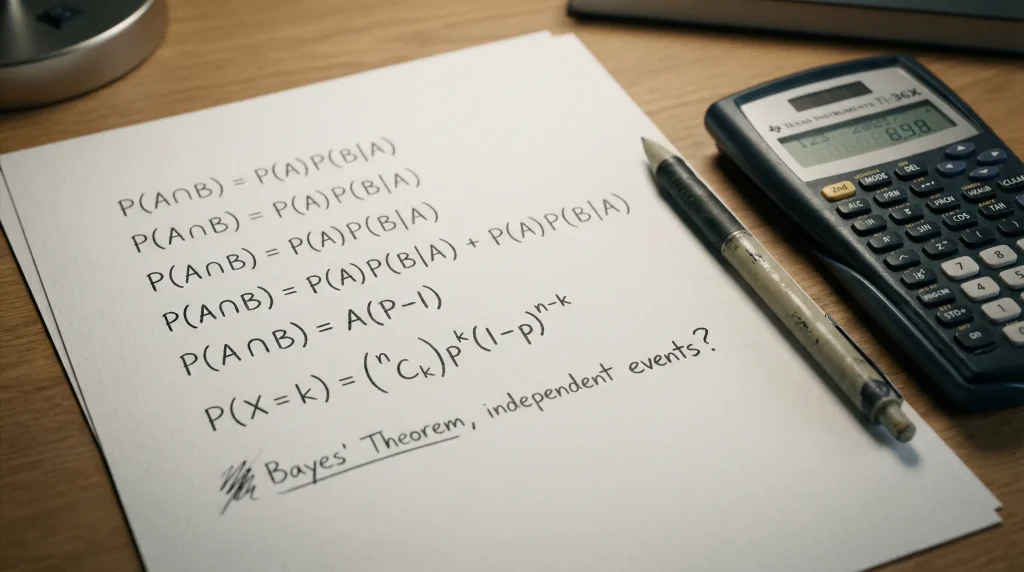 P(A∩B) = P(A)P(B|A)
P(A∩B) = P(A)P(B|A)
P(A∩B) = P(A)P(B|A)
P(A∩B) = P(A)P(B|A) + P(A)P(B|A)
P(A∩B) = A(P-1)
P(X=k) = (ⁿCₖ)pᵏ(1-p)ⁿ⁻ᵏ
Bayes' Theorem, independent events?
TEXAS INSTRUMENTS TI-36X
898
2nd MODE DEL
ALC PRN PRCN VRALB CLEAR
IN SIN COS TAN
7 8
4 5
STO+ 1
on